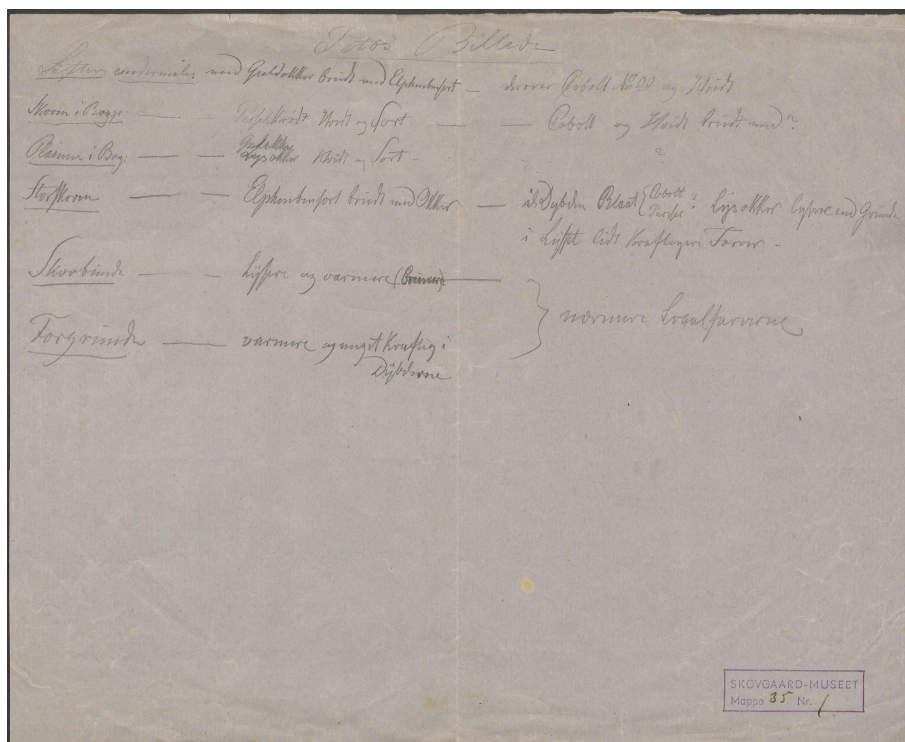 Billede
Luften undermales med Guldokker brudt med Elphenbensort — derover Cobolt No og Hvidt
Skoven i Baggr. — Hvidt og Sort — — Cobolt og Hvidt brudt med?
i Bag. — — Guldokker Lysokker Hvidt og Sort — ?
Storskoven — — Elphenbensort brudt med Okker — i Dybden Blaat { Cobolt ? Lysokker lysere end Grunden
i Lyset lidt kraftigere Farver —
— Lyssere og varmere
} nærmere Localfarverne
Forgrunden — varmere og meget kraftig i
Dybderne
SKOVGAARD-MUSEET
Mappe 35 Nr. 1